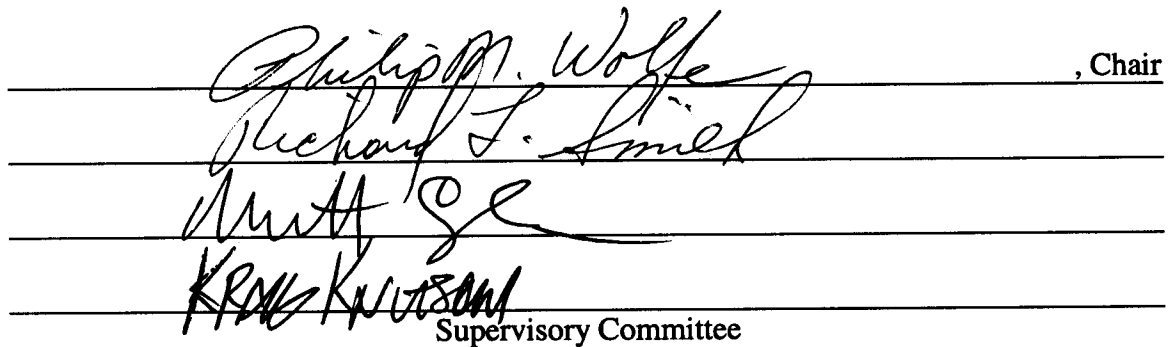 Philip M. Wolfe, Chair
Richard L. Smith
Kraig Knutson
Supervisory Committee